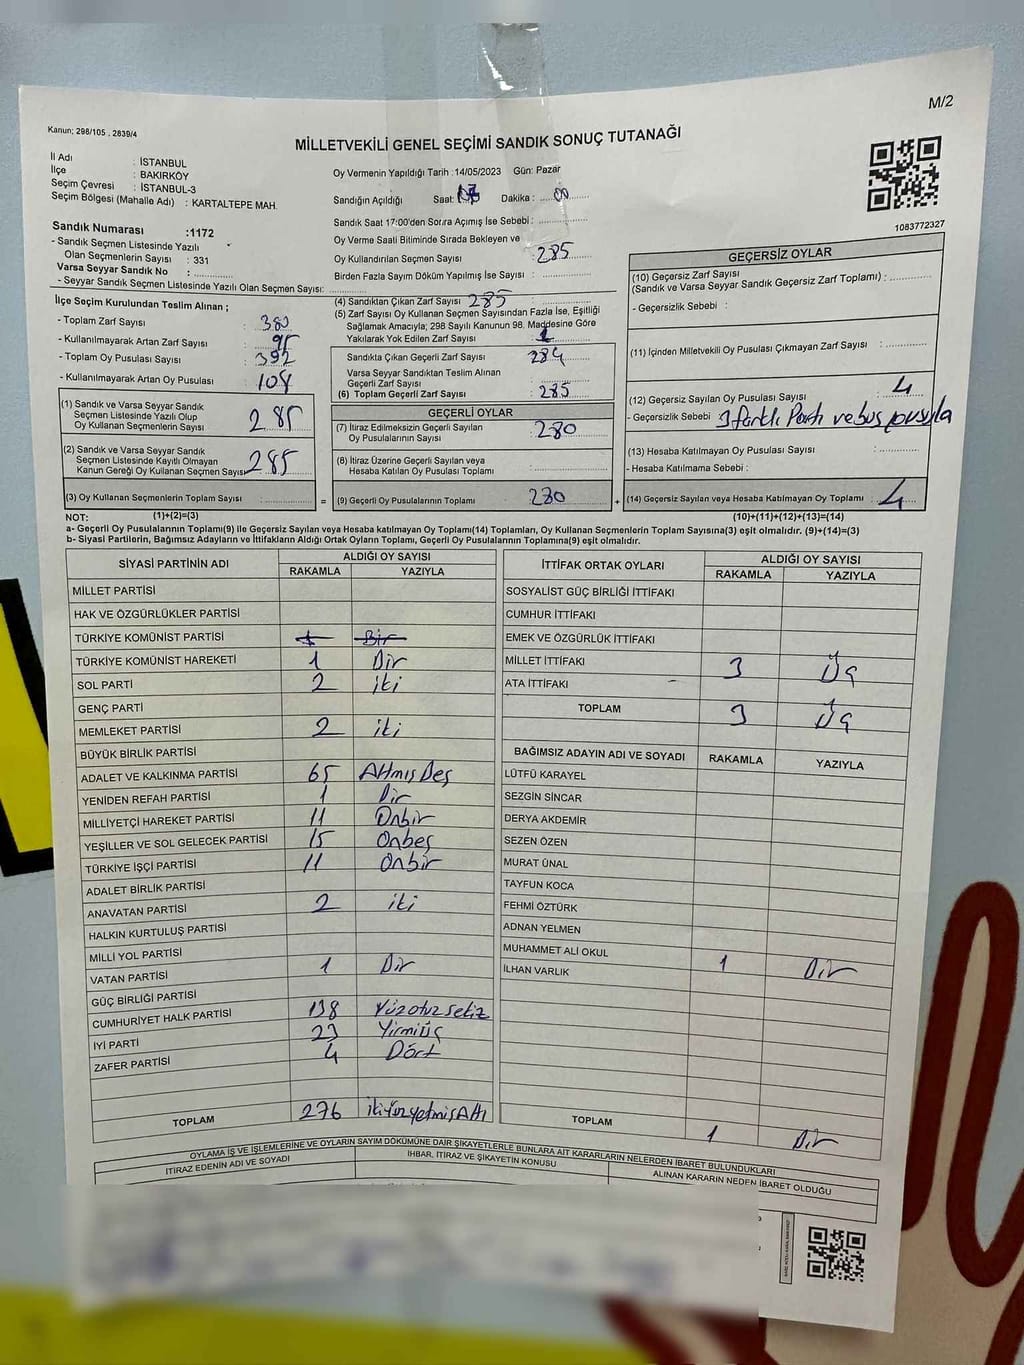 M/2
Kanun; 298/105 , 2839/4
MİLLETVEKİLİ GENEL SEÇİMİ SANDIK SONUÇ TUTANAĞI
İl Adı : İSTANBUL
İlçe : BAKIRKÖY
Seçim Çevresi : İSTANBUL-3
Seçim Bölgesi (Mahalle Adı) : KARTALTEPE MAH.
Oy Vermenin Yapıldığı Tarih :14/05/2023 Gün: Pazar
Sandığın Açıldığı Saat: Dakika: 00
Sandık Saat 17:00'den Sonra Açımış İse Sebebi :
1083772327
Sandık Numarası :1172
- Sandık Seçmen Listesinde Yazılı
Olan Seçmenlerin Sayısı : 331
Varsa Seyyar Sandık No :
- Seyyar Sandık Seçmen Listesinde Yazılı Olan Seçmen Sayısı:
Oy Verme Saati Bitiminde Sırada Bekleyen ve
Oy Kullandırılan Seçmen Sayısı : 285
Birden Fazla Sayım Döküm Yapılmış İse Sayısı :
İlçe Seçim Kurulundan Teslim Alınan ;
- Toplam Zarf Sayısı : 380
- Kullanılmayarak Artan Zarf Sayısı : 95
- Toplam Oy Pusulası Sayısı : 392
- Kullanılmayarak Artan Oy Pusulası : 108
(1) Sandık ve Varsa Seyyar Sandık
Seçmen Listesinde Yazılı Olup
Oy Kullanan Seçmenlerin Sayısı : 285
(2) Sandık ve Varsa Seyyar Sandık
Seçmen Listesinde Kayıtlı Olmayan
Kanun Gereği Oy Kullanan Seçmen Sayısı 285
(3) Oy Kullanan Seçmenlerin Toplam Sayısı :
(1)+(2)=(3)
(4) Sandıktan Çıkan Zarf Sayısı 285
(5) Zarf Sayısı Oy Kullanan Seçmen Sayısından Fazla İse, Eşitliği
Sağlamak Amacıyla; 298 Sayılı Kanunun 98. Maddesine Göre
Yakılarak Yok Edilen Zarf Sayısı : 1
Sandıkta Çıkan Geçerli Zarf Sayısı : 284
Varsa Seyyar Sandıktan Teslim Alınan
Geçerli Zarf Sayısı :
(6) Toplam Geçerli Zarf Sayısı : 285
GEÇERLİ OYLAR
(7) İtiraz Edilmeksizin Geçerli Sayılan
Oy Pusulalarının Sayısı : 280
(8) İtiraz Üzerine Geçerli Sayılan veya
Hesaba Katılan Oy Pusulası Toplamı :
= (9) Geçerli Oy Pusulalarının Toplamı : 280 +
GEÇERSİZ OYLAR
(10) Geçersiz Zarf Sayısı
(Sandık ve Varsa Seyyar Sandık Geçersiz Zarf Toplamı) :
- Geçersizlik Sebebi :
(11) İçinden Milletvekili Oy Pusulası Çıkmayan Zarf Sayısı :
(12) Geçersiz Sayılan Oy Pusulası Sayısı : 4
- Geçersizlik Sebebi : 3 farklı Parti ve boş pusula
(13) Hesaba Katılmayan Oy Pusulası Sayısı :
- Hesaba Katılmama Sebebi :
(14) Geçersiz Sayılan veya Hesaba Katılmayan Oy Toplamı : 4
(10)+(11)+(12)+(13)=(14)
NOT:
a- Geçerli Oy Pusulalarının Toplamı(9) ile Geçersiz Sayılan veya Hesaba katılmayan Oy Toplamı(14) Toplamları, Oy Kullanan Seçmenlerin Toplam Sayısına(3) eşit olmalıdır. (9)+(14)=(3)
b- Siyasi Partilerin, Bağımsız Adayların ve İttifakların Aldığı Ortak Oyların Toplamı, Geçerli Oy Pusulalarının Toplamına(9) eşit olmalıdır.
SİYASİ PARTİNİN ADI ALDIĞI OY SAYISI
RAKAMLA YAZIYLA
MİLLET PARTİSİ
HAK VE ÖZGÜRLÜKLER PARTİSİ
TÜRKİYE KOMÜNİST PARTİSİ 1 Bir
TÜRKİYE KOMÜNİST HAREKETİ 1 Bir
SOL PARTİ 2 iki
GENÇ PARTİ
MEMLEKET PARTİSİ 2 iki
BÜYÜK BİRLİK PARTİSİ
ADALET VE KALKINMA PARTİSİ 65 Altmış Beş
YENİDEN REFAH PARTİSİ 1 Bir
MİLLİYETÇİ HAREKET PARTİSİ 11 Onbir
YEŞİLLER VE SOL GELECEK PARTİSİ 15 Onbeş
TÜRKİYE İŞÇİ PARTİSİ 11 Onbir
ADALET BİRLİK PARTİSİ
ANAVATAN PARTİSİ 2 iki
HALKIN KURTULUŞ PARTİSİ
MİLLİ YOL PARTİSİ
VATAN PARTİSİ 1 Bir
GÜÇ BİRLİĞİ PARTİSİ
CUMHURİYET HALK PARTİSİ 138 Yüzotuzsekiz
İYİ PARTİ 23 Yirmiüç
ZAFER PARTİSİ 4 Dört
TOPLAM 276 ikiyüzyetmişAltı
İTTİFAK ORTAK OYLARI ALDIĞI OY SAYISI
RAKAMLA YAZIYLA
SOSYALİST GÜÇ BİRLİĞİ İTTİFAKI
CUMHUR İTTİFAKI
EMEK VE ÖZGÜRLÜK İTTİFAKI
MİLLET İTTİFAKI 3 Üç
ATA İTTİFAKI
TOPLAM 3 Üç
BAĞIMSIZ ADAYIN ADI VE SOYADI RAKAMLA YAZIYLA
LÜTFÜ KARAYEL
SEZGİN SİNCAR
DERYA AKDEMİR
SEZEN ÖZEN
MURAT ÜNAL
TAYFUN KOCA
FEHMİ ÖZTÜRK
ADNAN YELMEN
MUHAMMET ALİ OKUL
İLHAN VARLIK 1 Bir
TOPLAM 1 Bir
OYLAMA İŞ VE İŞLEMLERİNE VE OYLARIN SAYIM DÖKÜMÜNE DAİR ŞİKAYETLERLE BUNLARA AİT KARARLARIN NELERDEN İBARET BULUNDUKLARI
İTİRAZ EDENİN ADI VE SOYADI İHBAR, İTİRAZ VE ŞİKAYETİN KONUSU ALINAN KARARIN NEDEN İBARET OLDUĞU